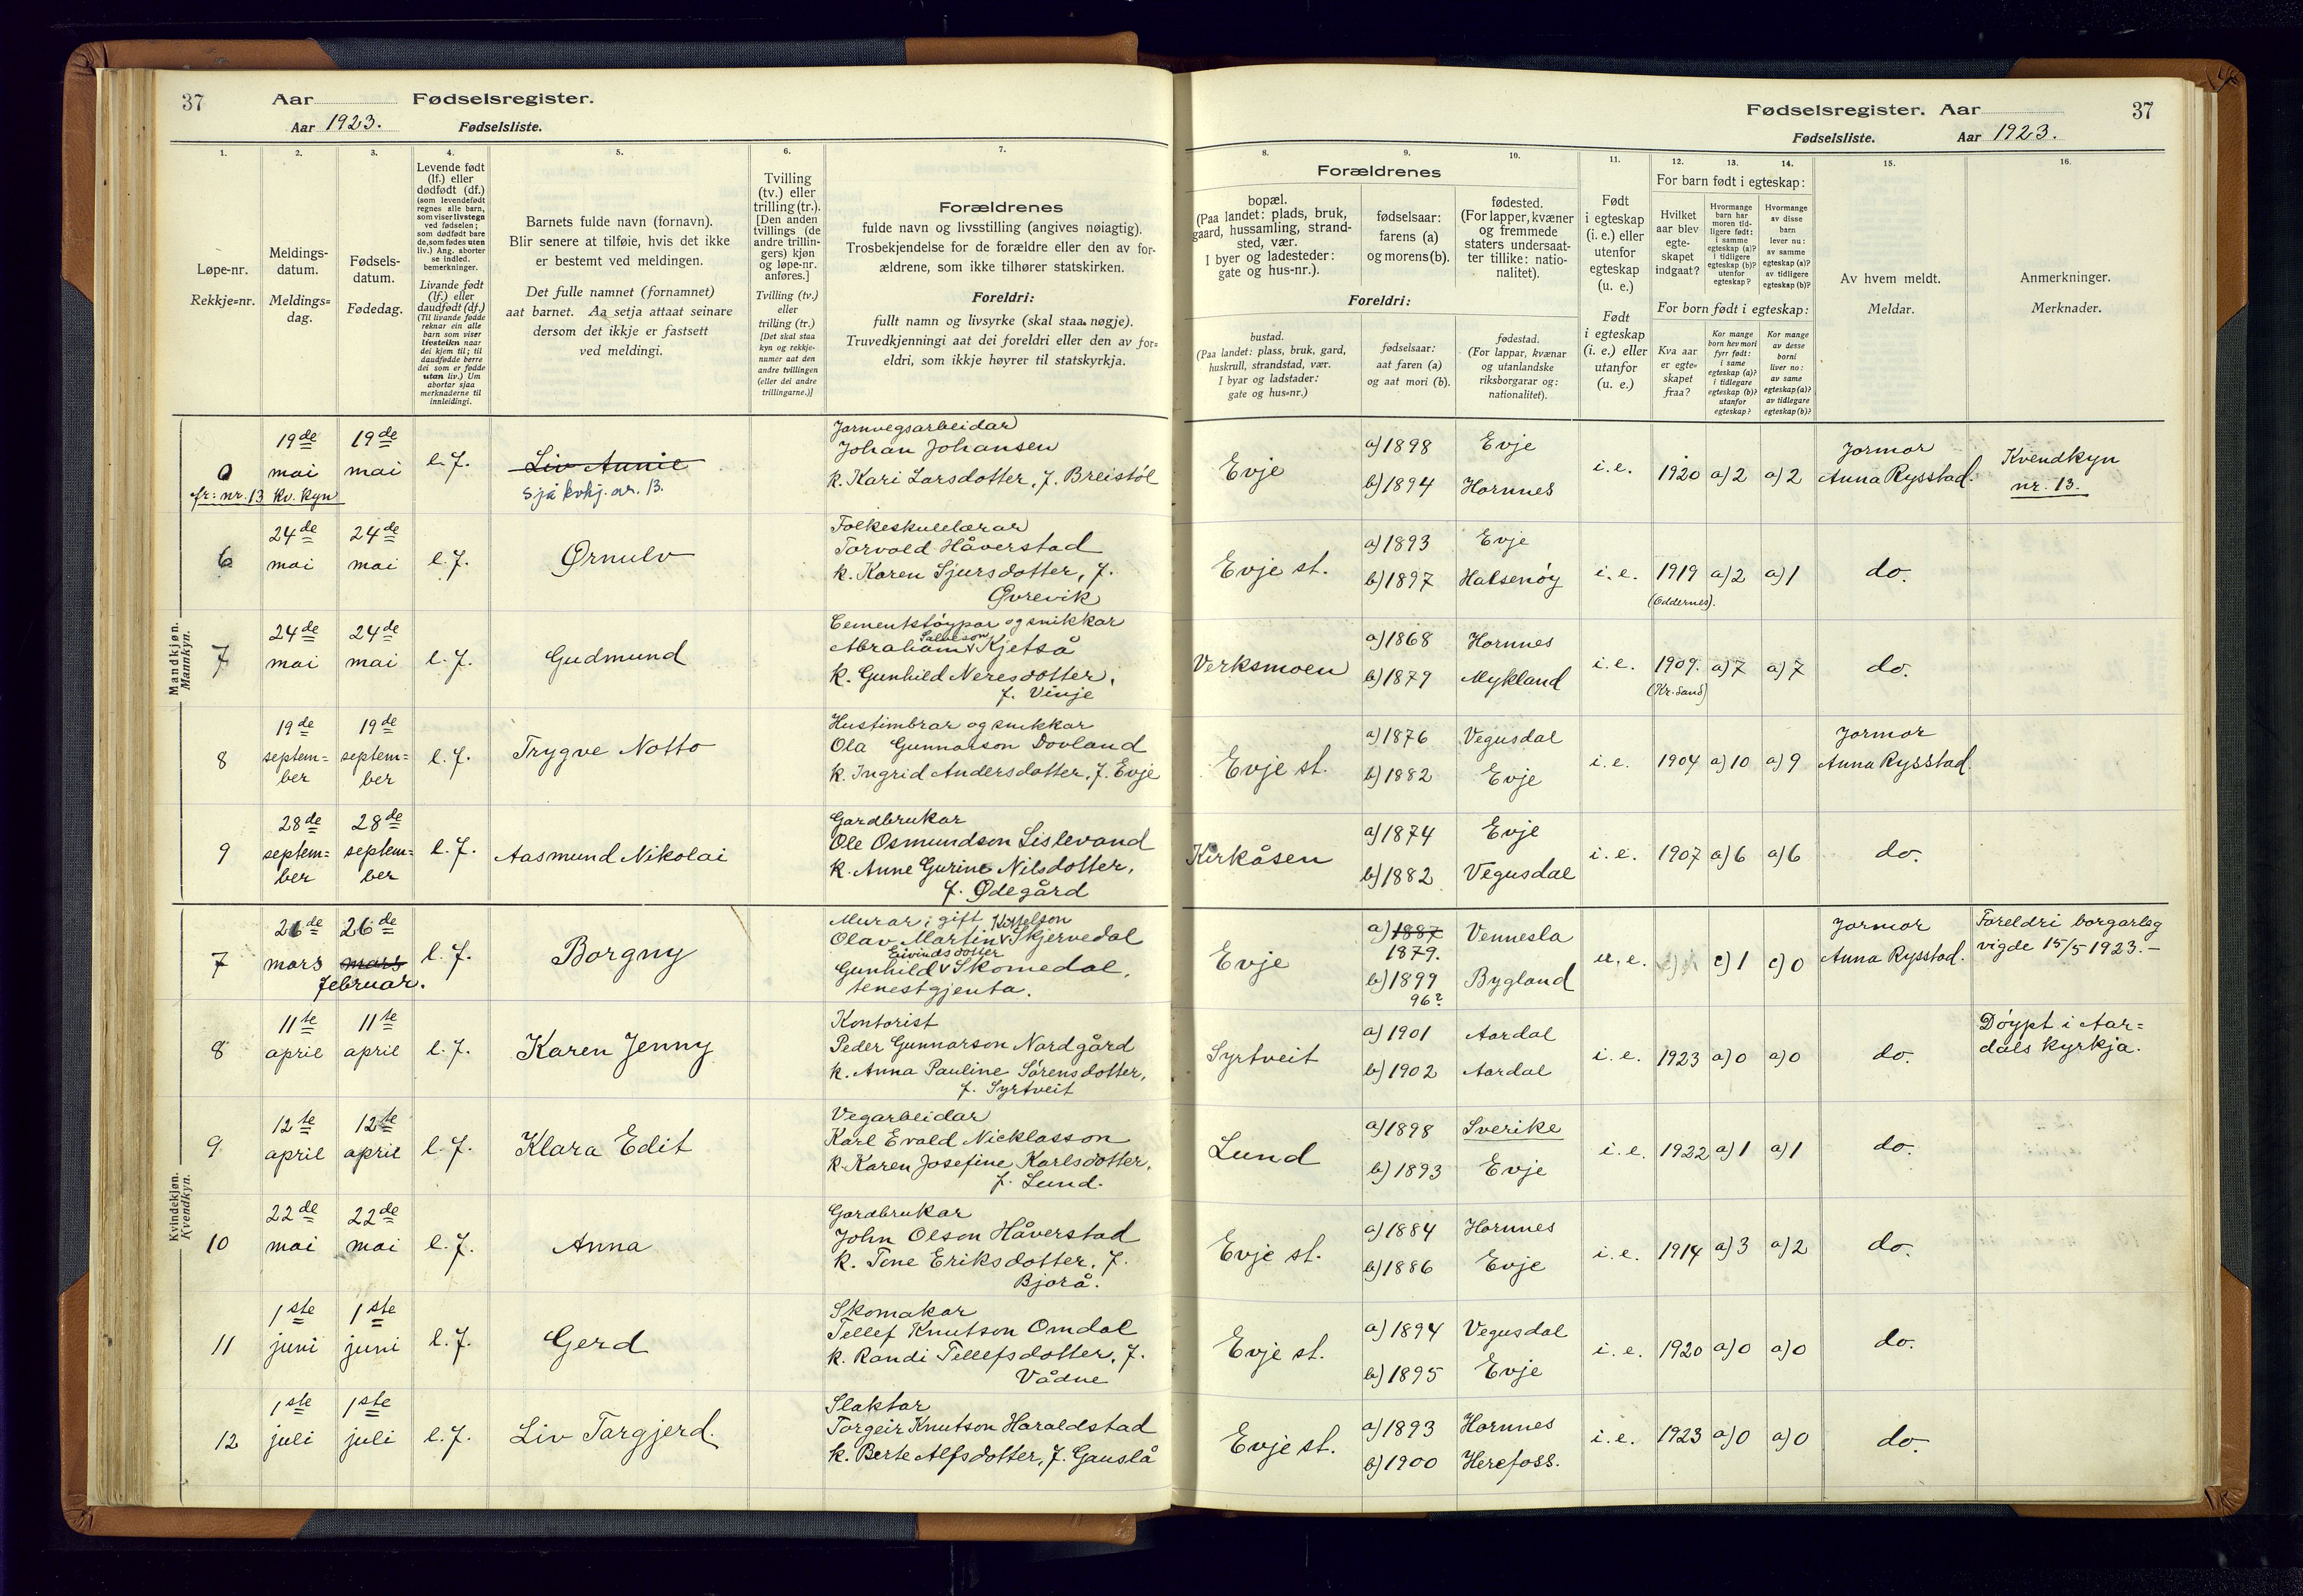 37 Aar Fødselsregister.
Aar 1923. Fødselsliste.
1. 2. 3. 4. 5. 6. 7.
Løpe-nr.
Rekkje=nr.
Meldings-
datum.
Meldings=
dag.
Fødsels-
datum.
Fødedag.
Levende født
(lf.) eller
dødfødt (df.)
(som levendefødt
regnes alle barn,
som viser livstegn
ved fødselen;
som dødfødt bare
de, som fødes uten
liv.) Ang. aborter
se indled.
bemerkninger.
Livande født
(lf.) eller
daudfødt (df.)
(Til livande fødde
reknar ein alle
barn som viser
livsteikn naar
dei kjem til; til
daudfødde berre
dei som er fødde
utan liv.) Um
abortar sjaa
merknaderne til
innleidingi.
Barnets fulde navn (fornavn).
Blir senere at tilføie, hvis det ikke
er bestemt ved meldingen.
Det fulle namnet (fornamnet)
aat barnet. Aa setja attaat seinare
dersom det ikkje er fastsett
ved meldingi.
Tvilling
(tv.) eller
trilling (tr.).
[Den anden
tvillings (de
andre trillin-
gers) kjøn
og løpe-nr.
anføres.]
Tvilling (tv.)
eller
trilling (tr.)
[Det skal staa
kyn og rekkje-
numer aat den
andre tvillingen
(eller dei andre
trillingarne.)]
Forældrenes
fulde navn og livsstilling (angives nøiagtig).
Trosbekjendelse for de forældre eller den av for-
ældrene, som ikke tilhører statskirken.
Foreldri:
fullt namn og livsyrke (skal staa nøgje).
Truvedkjenningi aat dei foreldri eller den av for=
eldri, som ikkje høyrer til statskyrkja.
Mandkjøn.
Mannkyn.
19de 19de
mai mai
l. f.
Liv Annie
sjå kvkj. nr. 13.
fr: nr. 13 kv. kyn
Jarnvegsarbeidar
Johan Johansen
k. Kari Larsdotter, f. Breistøl
6
24de 24de
mai mai
l. f.
Ørnulv
Folkeskulelærar
Torvald Håverstad
k. Karen Sjursdotter, f.
Øvrevik
7
24de 24de
mai mai
l. f.
Gudmund
Cementstøypar og snikkar
Salveson
Abraham Kjetså
k. Gunhild Neresdotter,
f. Vinje
8
19de 19de
septem= septem=
ber ber
l. f.
Trygve Notto
Hustimbrar og snikkar
Ola Gunnarson Dovland
k. Ingrid Andersdotter, f. Evje
9
28de 28de
septem= septem=
ber ber
l. f.
Aasmund Nikolai
Gardbrukar
Ole Osmundson Lislevand
k. Anne Gurine Nilsdotter,
f. Ødegård
Kvindekjøn.
Kvendkyn.
7
26de 26de
mars mars
februar.
l. f.
Borgny
Murar, gift Kittelson
Olav Martin Skjervedal
Eivindsdotter
Gunhild Skomedal,
tenestgjenta.
8
11te 11te
april april
l. f.
Karen Jenny
Kontorist
Peder Gunnarson Nordgård
k. Anna Pauline Sørensdotter,
f. Syrtveit
9
12te 12te
april april
l. f.
Klara Edit
Vegarbeidar
Karl Evald Nicklasson
k. Karen Josefine Karlsdotter,
f. Lund.
10
22de 22de
mai mai
l. f.
Anna
Gardbrukar
John Olson Håverstad
k. Tone Eriksdotter, f.
Bjorå.
11
1ste 1ste
juni juni
l. f.
Gerd
Skomakar
Tellef Knutson Omdal
k. Randi Tellefsdotter, f.
Vådne
12
1ste 1ste
juli juli
l. f.
Liv Torgjerd.
Slaktar
Torgeir Knutson Haraldstad
k. Berte Alfsdotter, f. Gauslå
Fødselsregister. Aar 37
Fødselsliste. Aar 1923.
8. 9. 10. 11. 12. 13. 14. 15. 16.
Forældrenes
bopæl.
(Paa landet: plads, bruk,
gaard, hussamling, strand-
sted, vær.
I byer og ladesteder:
gate og hus-nr.).
fødselsaar:
farens (a)
og morens (b).
fødested.
(For lapper, kvæner
og fremmede
staters undersaat-
ter tillike: natio-
nalitet).
Foreldri:
bustad.
(Paa landet: plass, bruk, gard,
huskrull, strandstad, vær.
I byar og ladstader:
gate og hus=nr.)
fødselsaar:
aat faren (a)
og aat mori (b).
fødestad.
(For lappar, kvænar
og utanlandske
riksborgarar og:
nationalitet).
Født
i egteskap
(i. e.) eller
utenfor
egteskap
(u. e.)
Født
i egteskap
(i. e.) eller
utanfor
(u. e.)
For barn født i egteskap:
Hvilket
aar blev
egte-
skapet
indgaat?
Hvormange
barn har
moren tid-
ligere født:
i samme
egteskap (a)?
i tidligere
egteskap (b)?
utenfor
egteskap?
Hvormange
av disse
barn
lever nu:
av samme
egteskap (a)?
av tidligere
egteskap (b)?
For born født i egteskap:
Kva aar
er egte=
skapet
fraa?
Kor mange
born hev mori
fyrr født:
i same
egteskap (a)?
i tidlegare
egteskap (b)?
utanfor
egteskap?
Kor mange
av desse
borni
liver no:
av same
egteskap (a)?
av tidlegare
egteskap (b)?
Av hvem meldt.
Meldar.
Anmerkninger.
Merknader.
Evje
a) 1898 Evje
b) 1894 Hornnes
i. e. 1920 a) 2 a) 2
Jormor
Anna Rysstad.
Kvendkyn
nr. 13.
Evje st.
a) 1893 Evje
b) 1897 Halsenøy
i. e. 1919 a) 2 a) 1 do.
(Oddernes).
Verksmoen
a) 1868 Hornnes
b) 1879 Mykland
i. e. 1909. a) 7 a) 7 do.
(Kr.sand)
Evje st.
a) 1876 Vegusdal
b) 1882 Evje
i. e. 1904 a) 10 a) 9
Jormor
Anna Rysstad.
Kirkåsen
a) 1874 Evje
b) 1882 Vegusdal
i. e. 1907 a) 6 a) 6 do.
Evje
a) 1887 Vennesla
1879.
b) 1899 Bygland
96?
u. e. c) 1 c) 0
Jormor
Anna Rysstad.
Foreldri borgarleg
vigde 15/5 1923. –
Syrtveit
a) 1901 Aardal
b) 1902 Aardal
i. e. 1923 a) 0 a) 0 do.
Døypt i Aar=
dals kyrkja.
Lund
a) 1898 Sverike
b) 1893 Evje
i. e. 1922 a) 1 a) 1 do.
Evje st.
a) 1884 Hornnes
b) 1886 Evje
i. e. 1914 a) 3 a) 2 do.
Evje st.
a) 1894 Vegusdal
b) 1895 Evje
i. e. 1920 a) 0 a) 0 do.
Evje st.
a) 1893 Hornnes
b) 1900 Herefoss.
i. e. 1923 a) 0 a) 0 do.